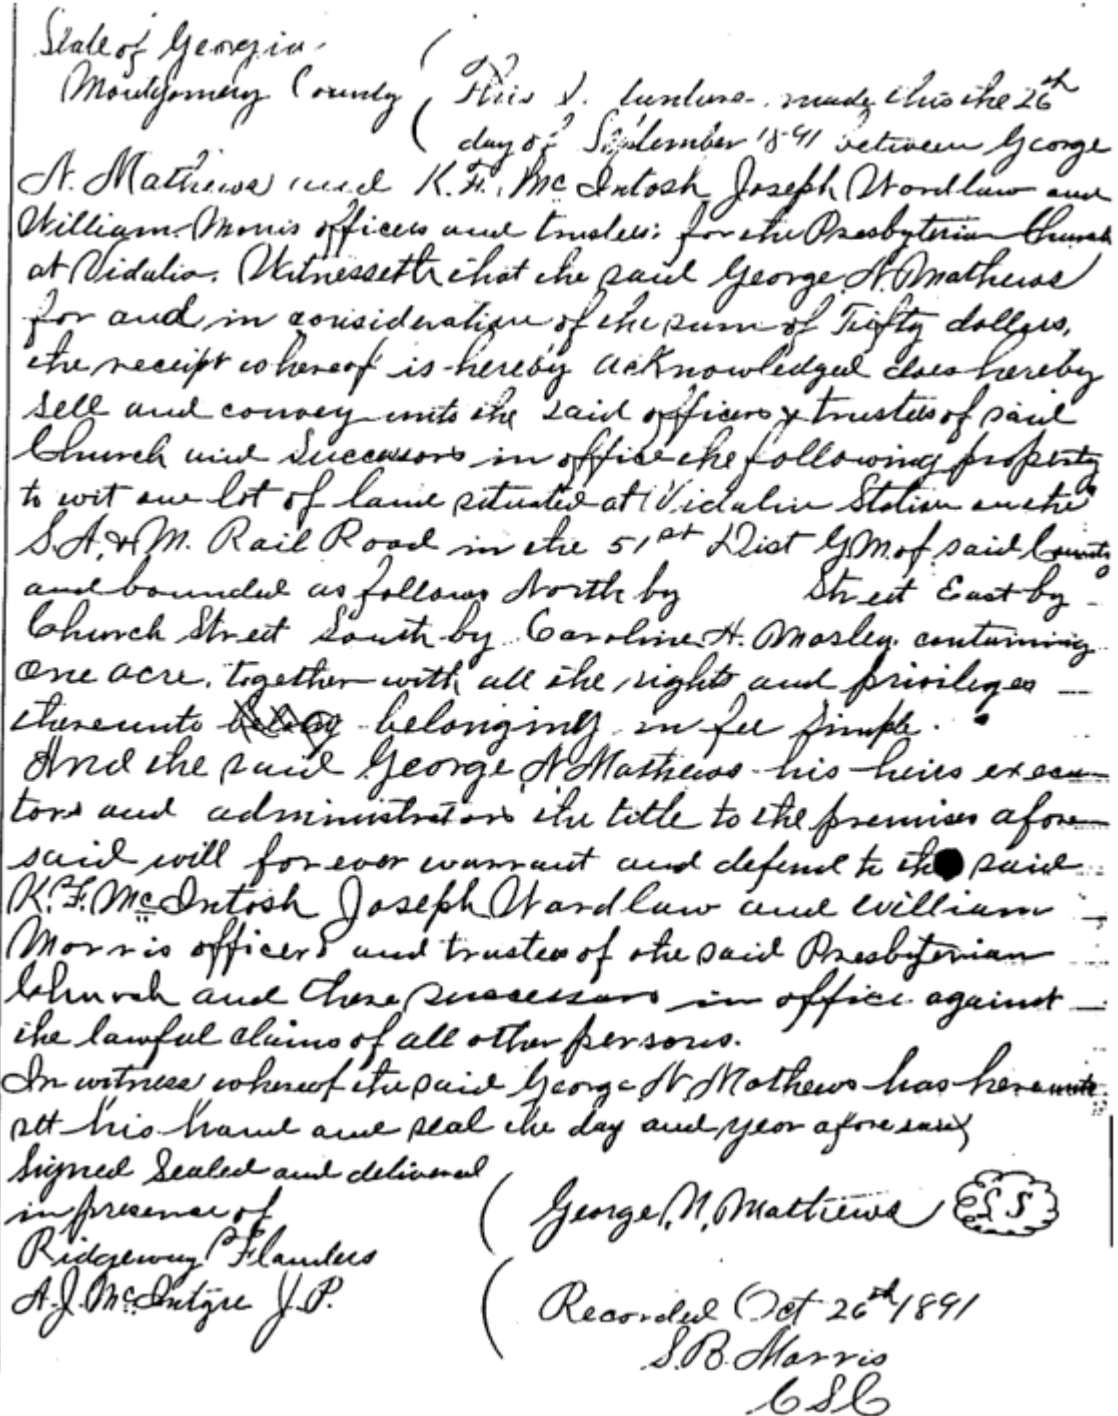 State of Georgia
Montgomery County ( This Indenture made this the 26th
( day of September 1891 between George
N. Mathews and K. F. McIntosh Joseph Wardlaw and
William Morris officers and trustees for the Presbyterian Church
at Vidalia. Witnesseth that the said George N. Mathews
for and in consideration of the sum of Fifty dollars,
the receipt whereof is hereby acknowledged does hereby
sell and convey unto the said officers & trustees of said
Church and successors in office the following property
to wit one lot of land situated at Vidalia Station on the
S. A. & M. Rail Road in the 51st Dist G.M. of said County
and bounded as follows North by Street East by
Church Street South by Caroline H. Mosley containing
one acre, together with all the rights and privileges
thereunto belonging in fee simple.
And the said George N Mathews his heirs execu
tors and administrators the title to the premises afore
said will forever warrant and defend to the said
K. F. McIntosh Joseph Wardlaw and William
Morris officers and trustees of the said Presbyterian
Church and there successors in office against
the lawful claims of all other persons.
In witness whereof the said George N. Mathews has hereunto
set his hand and seal the day and year aforesaid
Signed Sealed and delivered
in presence of ( George N. Mathews L S
Ridgeway Flanders
A. J. McIntyre J. P. ( Recorded Oct 26th 1891
S. B. Morris
C S C